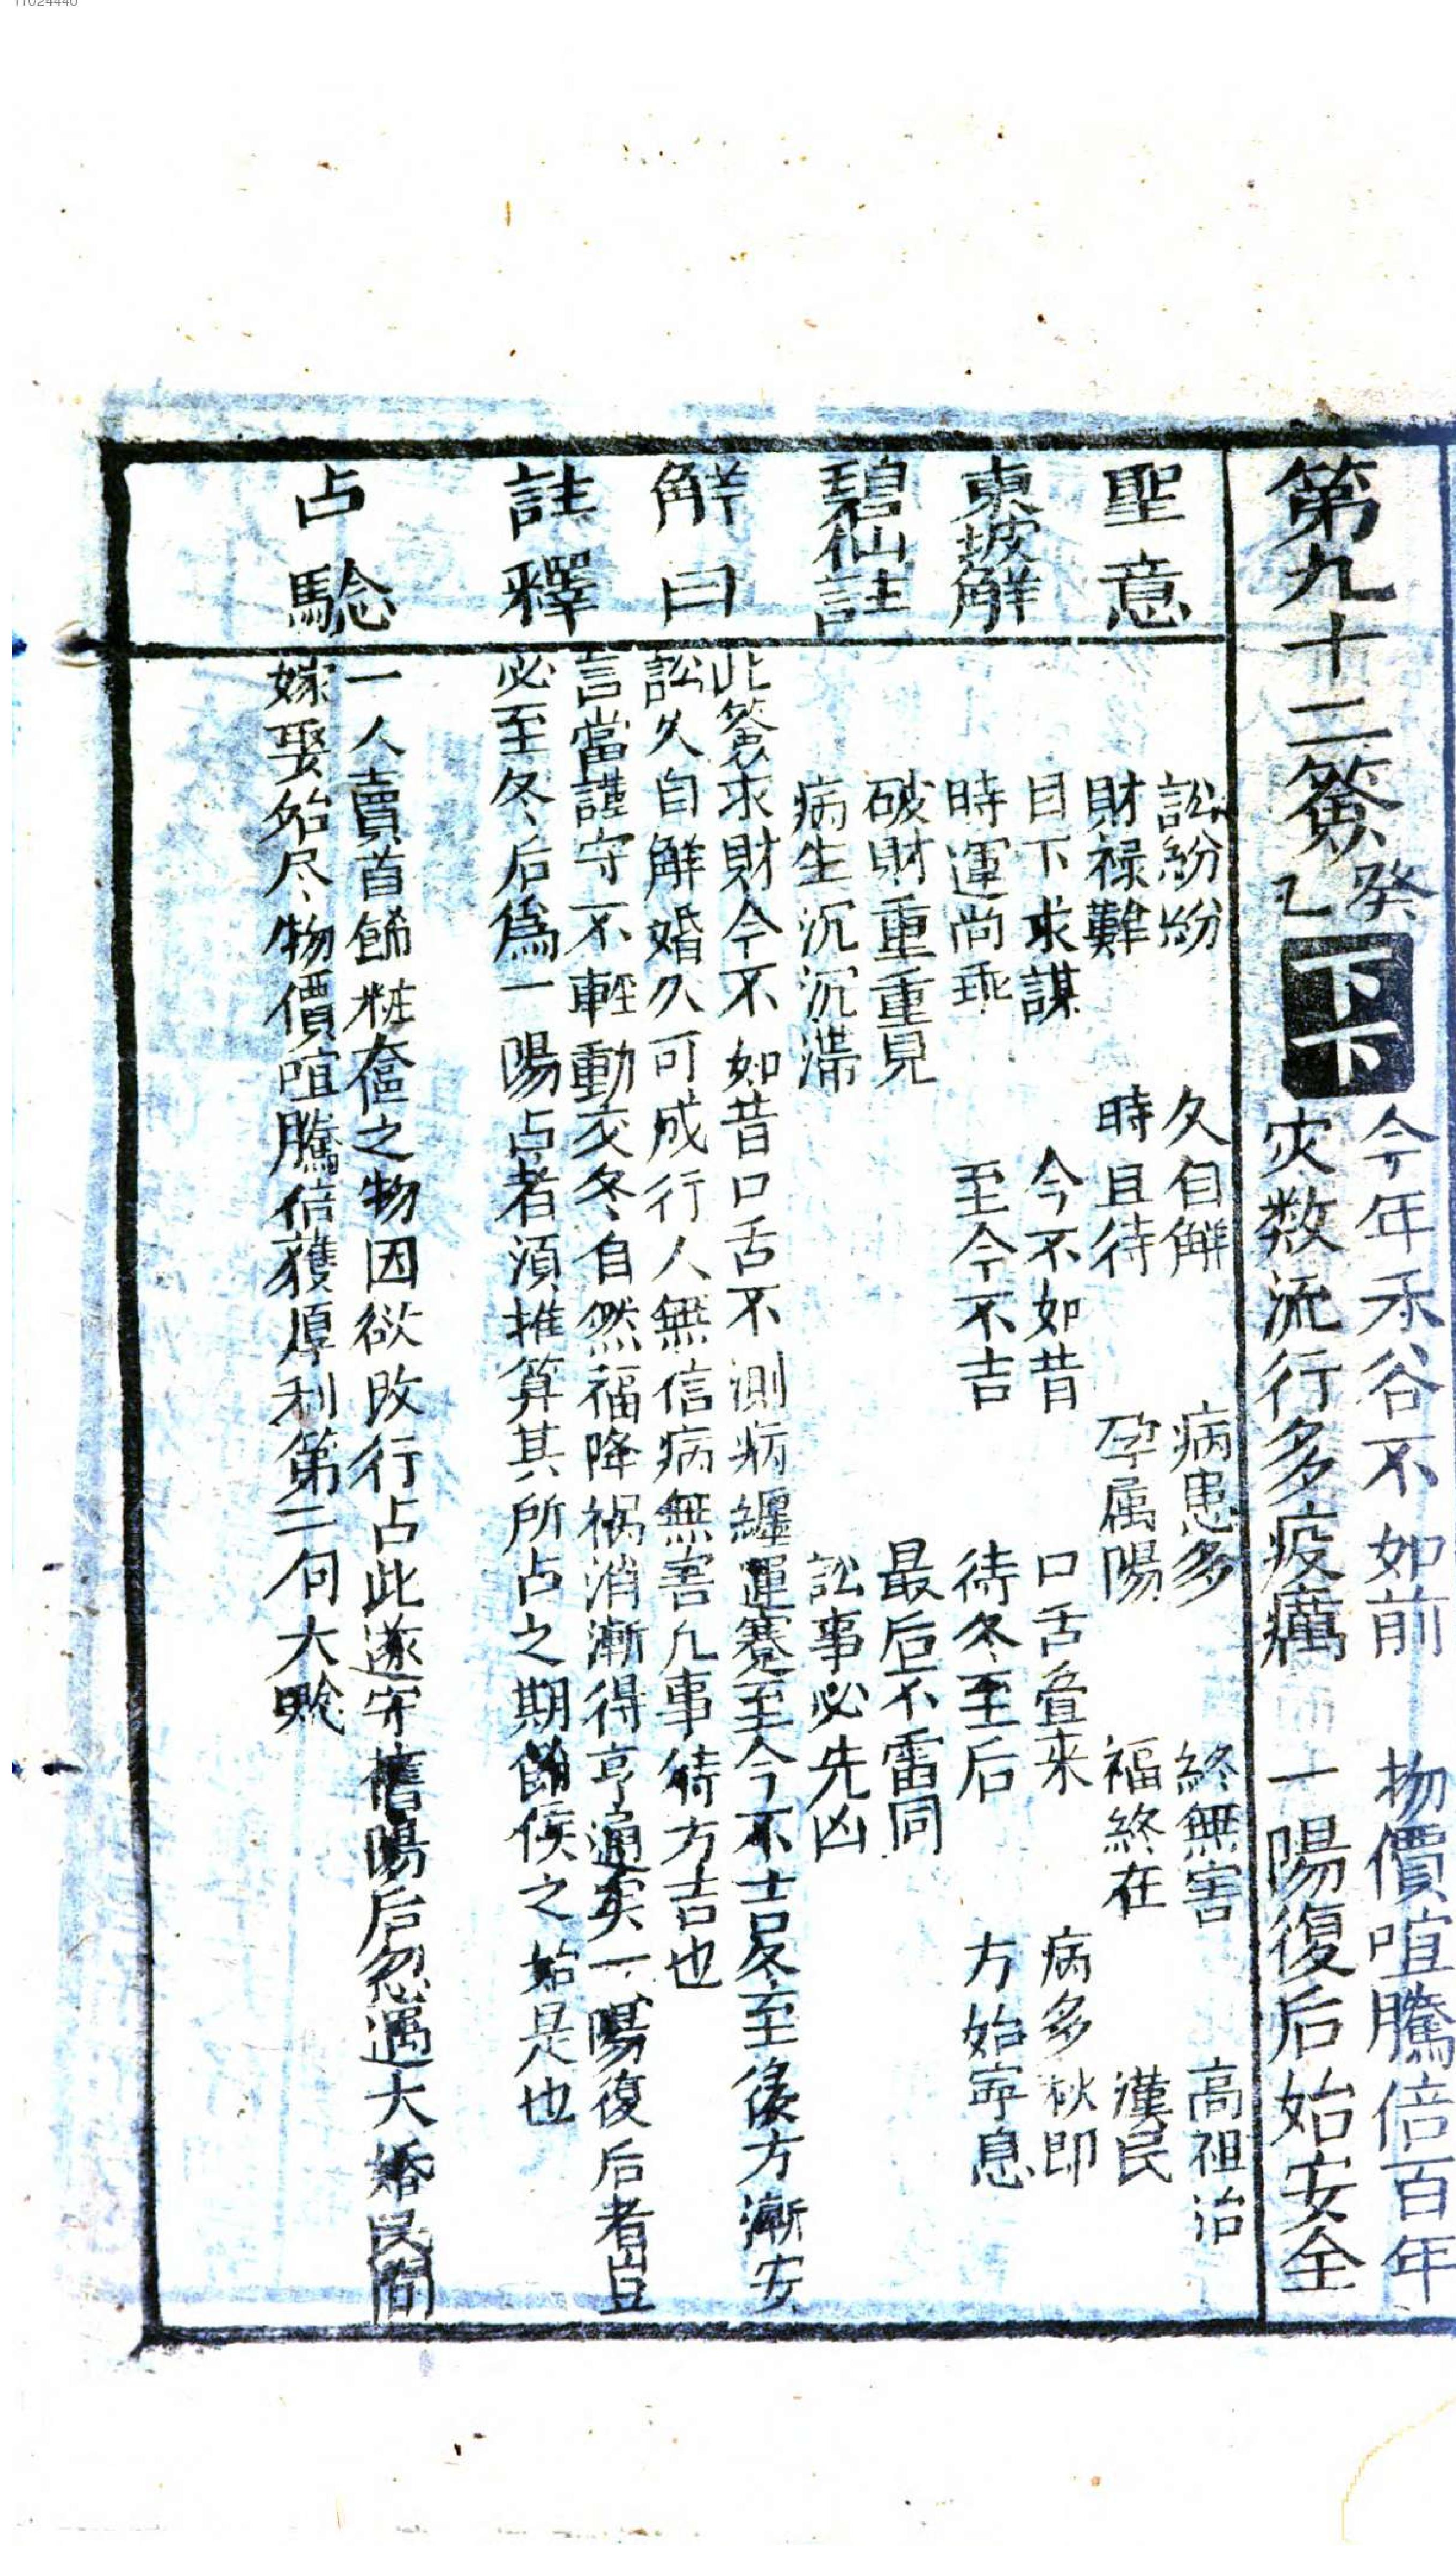 第九十二簽 癸乙 下下
今年禾谷不如前 物價喧騰倍百年
灾数流行多疫癘 一陽復后始安全
聖意
訟紛紛 久自解 病患多 終無害 高祖治
財禄難 時且待 孕属陽 福終在 漢民
東坡解
目下求謀 今不如昔 口舌叠来 病多秋即
時運尚乖 至今不吉 待冬至后 方始寕息
碧仙註
破財重重見 最后不雷同
病生沉沉滯 訟事必先凶
解曰
此簽求財今不如昔口舌不測病纏運蹇至今不吉冬至後方漸安
訟久自解婚久可成行人無信病無害凢事待方吉也
註釋
言當謹守不輕動交冬自然福降禍消漸得亨通矣一陽復后者豈
必至冬后爲一陽占者湏推算其所占之期餙侯之始是也
占驗
一人賣首餙粧奩之物因欲改行占此遂守舊陽后忽遇大婚民間
嫁娶殆尽物價喧騰倍獲厚利第二句大驗